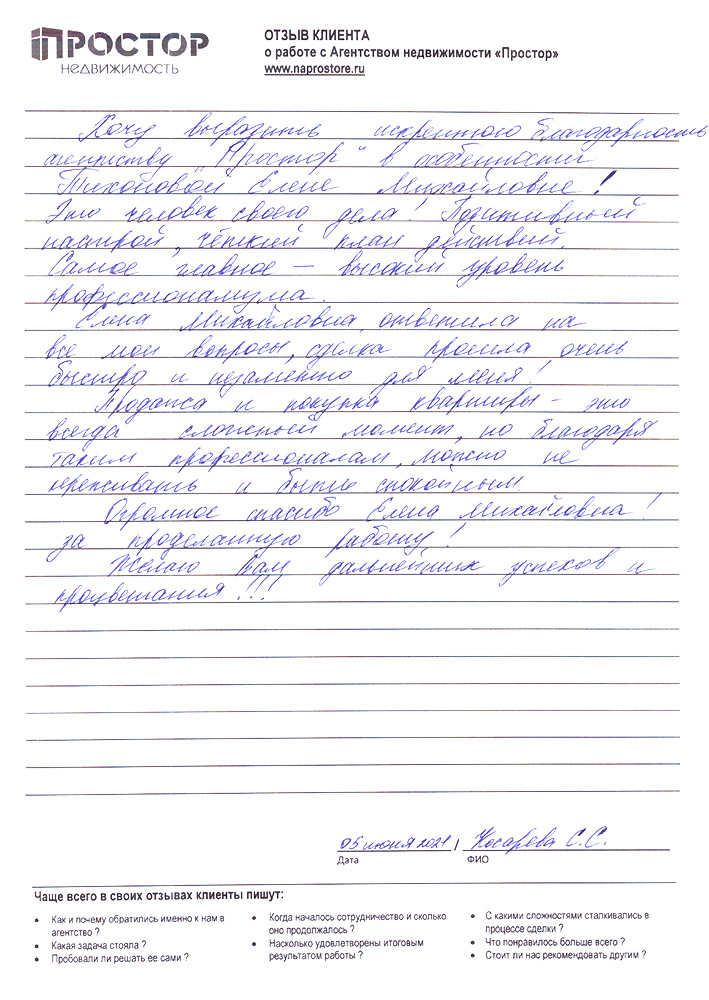 ПРОСТОР
НЕДВИЖИМОСТЬ
ОТЗЫВ КЛИЕНТА
о работе с Агентством недвижимости «Простор»
www.naprostore.ru
Хочу выразить искреннюю благодарность
агентству "Простор" в особенности
Тихоновой Елене Михайловне!
Это человек своего дела! Позитивный
настрой, чёткий план действий.
Самое главное – высокий уровень
профессионализма.
Елена Михайловна, ответила на
все мои вопросы, сделка прошла очень
быстро и незаметно для меня!
Продажа и покупка квартиры – это
всегда сложный момент, но благодаря
таким профессионалам, можно не
переживать и быть спокойным.
Огромное спасибо Елена Михайловна!
за проделанную работу!
Желаю Вам дальнейших успехов и
процветания!!!
05 июня 2021 / Косарева С.С.
Дата ФИО
Чаще всего в своих отзывах клиенты пишут:
• Как и почему обратились именно к нам в
агентство ?
• Какая задача стояла ?
• Пробовали ли решать ее сами ?
• Когда началось сотрудничество и сколько
оно продолжалось ?
• Насколько удовлетворены итоговым
результатом работы ?
• С какими сложностями сталкивались в
процессе сделки ?
• Что понравилось больше всего ?
• Стоит ли нас рекомендовать другим ?